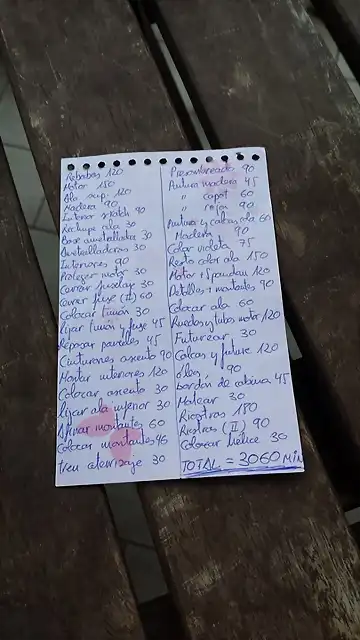 Rebabas 120
Motor 150
Ala sup. 120
Madera 90
Interior 90
Rechupe ala 30
Base ametralladora 30
Ametralladoras 30
Interiores 90
Proteger motor 30
Cerrar fuselaje 30
Cerrar fuse (II) 60
Colocar timón 30
Lijar timón y fuse 45
Repasar paneles 45
Cinturones asiento 90
Montar interiores 120
Colocar asiento 30
Lijar ala inferior 30
Afinar montantes 60
Colocar montantes 45
tren aterrizaje 30
Presombreado 90
Pintura madera 45
" capot 60
" 90
Pintura y calcas ala 60
Madera 90
Color violeta 75
Resto color ala 150
Motor + Spandau 120
Detalles + montantes 90
Colocar ala 60
Ruedas y tubos motor 120
Futurizar 30
Calcas y future 120
óleos 90
bordón de cabina 45
Matear 30
Riostras 180
Riostras (II) 90
Colocar hélice 30
TOTAL = 3060 MIN